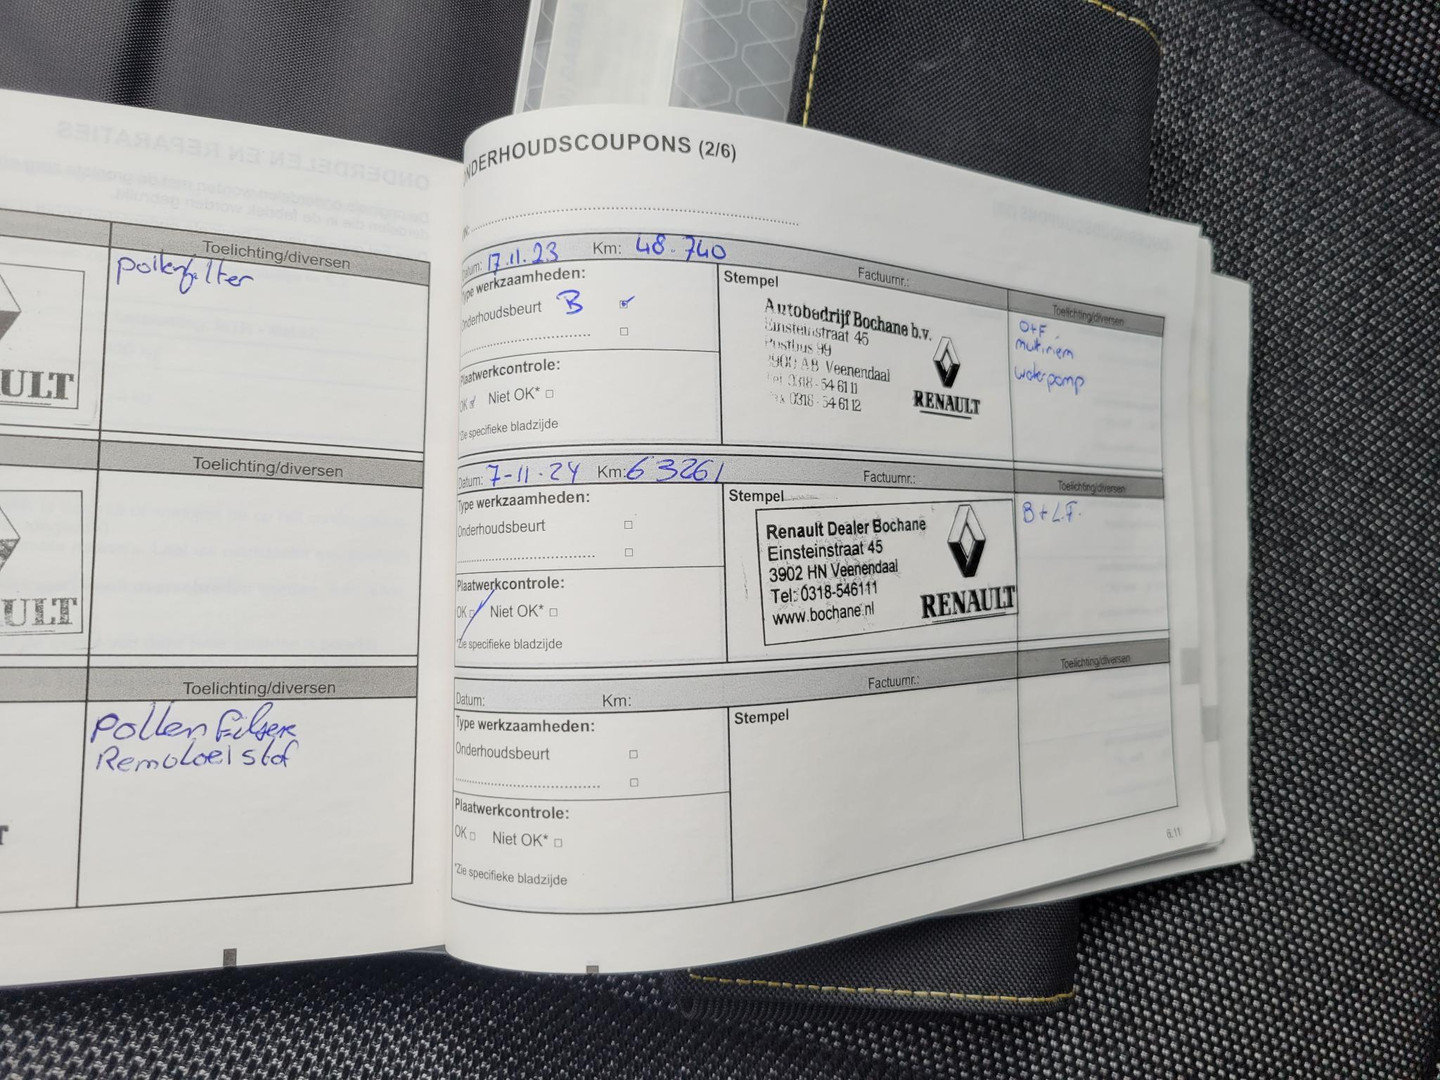 Toelichting/diversen
pollenfilter
ULT
Toelichting/diversen
ULT
Toelichting/diversen
Pollen Filter
Remvloeistof
T
ONDERHOUDSCOUPONS (2/6)
Datum: 17.11.23 Km: 48.740 Factuurnr.: Toelichting/diversen
Type werkzaamheden:
Onderhoudsbeurt B
Plaatwerkcontrole:
OK Niet OK*
*Zie specifieke bladzijde
Stempel
Autobedrijf Bochane b.v.
Einsteinstraat 45
Postbus 99
3900 AB Veenendaal
Tel 0318-546111
Fax 0318-546112
RENAULT
O+F
multiriem
waterpomp
Datum: 7-11-24 Km: 63261 Factuurnr.: Toelichting/diversen
Type werkzaamheden:
Onderhoudsbeurt
Plaatwerkcontrole:
OK Niet OK*
*Zie specifieke bladzijde
Stempel
Renault Dealer Bochane
Einsteinstraat 45
3902 HN Veenendaal
Tel: 0318-546111
www.bochane.nl
RENAULT
B+L.F.
Datum: Km: Factuurnr.: Toelichting/diversen
Type werkzaamheden:
Onderhoudsbeurt
Plaatwerkcontrole:
OK Niet OK*
*Zie specifieke bladzijde
Stempel
6.11